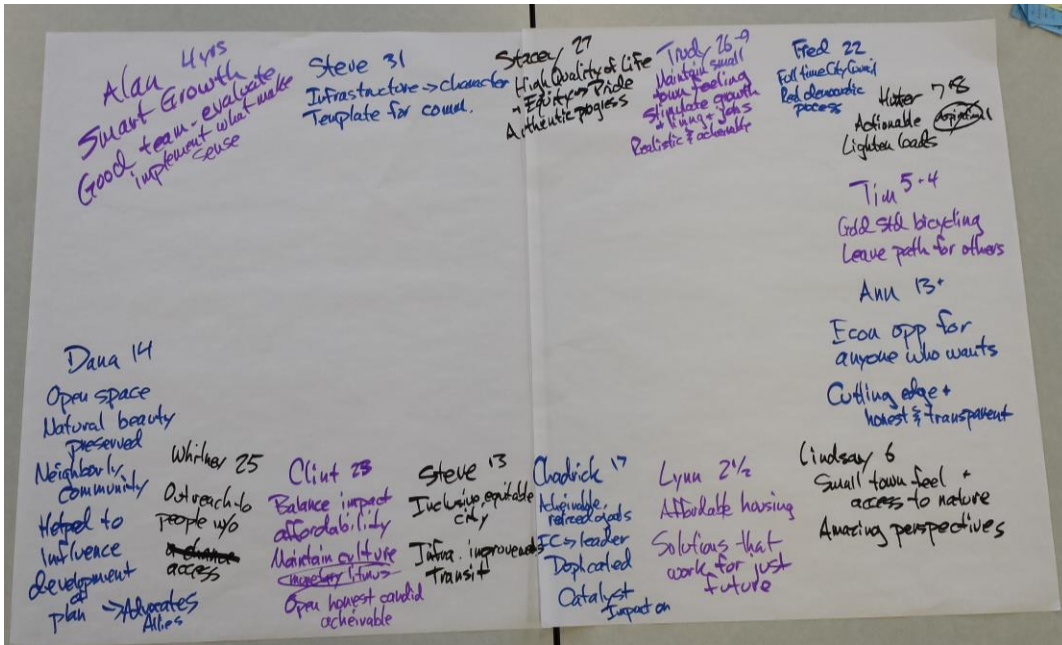 Alan 4yrs
Smart Growth
Good team-evaluate
implement what make
sense
Steve 31
Infrastructure → character
Template for comm.
Stacey 27
High Quality of Life
Equity → Pride
Authentic progress
Trudy 26-9
Maintain small
town feeling
Stimulate growth
living + jobs
Realistic &
Fred 22
Full time City Council
Real democratic
process
78
Actionable
Lighten loads
Tim 5-4
Gold Std bicycling
Leave path for others
Ann 13+
Econ opp for
anyone who wants
Cutting edge +
honest & transparent
Lindsay 6
Small town feel +
access to nature
Amazing perspectives
Dana 14
Open space
Natural beauty
preserved
Neighborly
community
Helped to
influence
development
of
plan → Advocates
Allies
Whitney 25
Outreach to
people w/o
a chance
access
Clint 23
Balance impact
affordability
Maintain culture
Open honest candid
acheivable
Steve 13
Inclusive, equitable
city
Infra. improvements
Transit
Chadrick 17
Acheivable,
goals
IC → leader
Catalyst
Impact on
Lynn 2½
Affordable housing
Solutions that
work for just
future